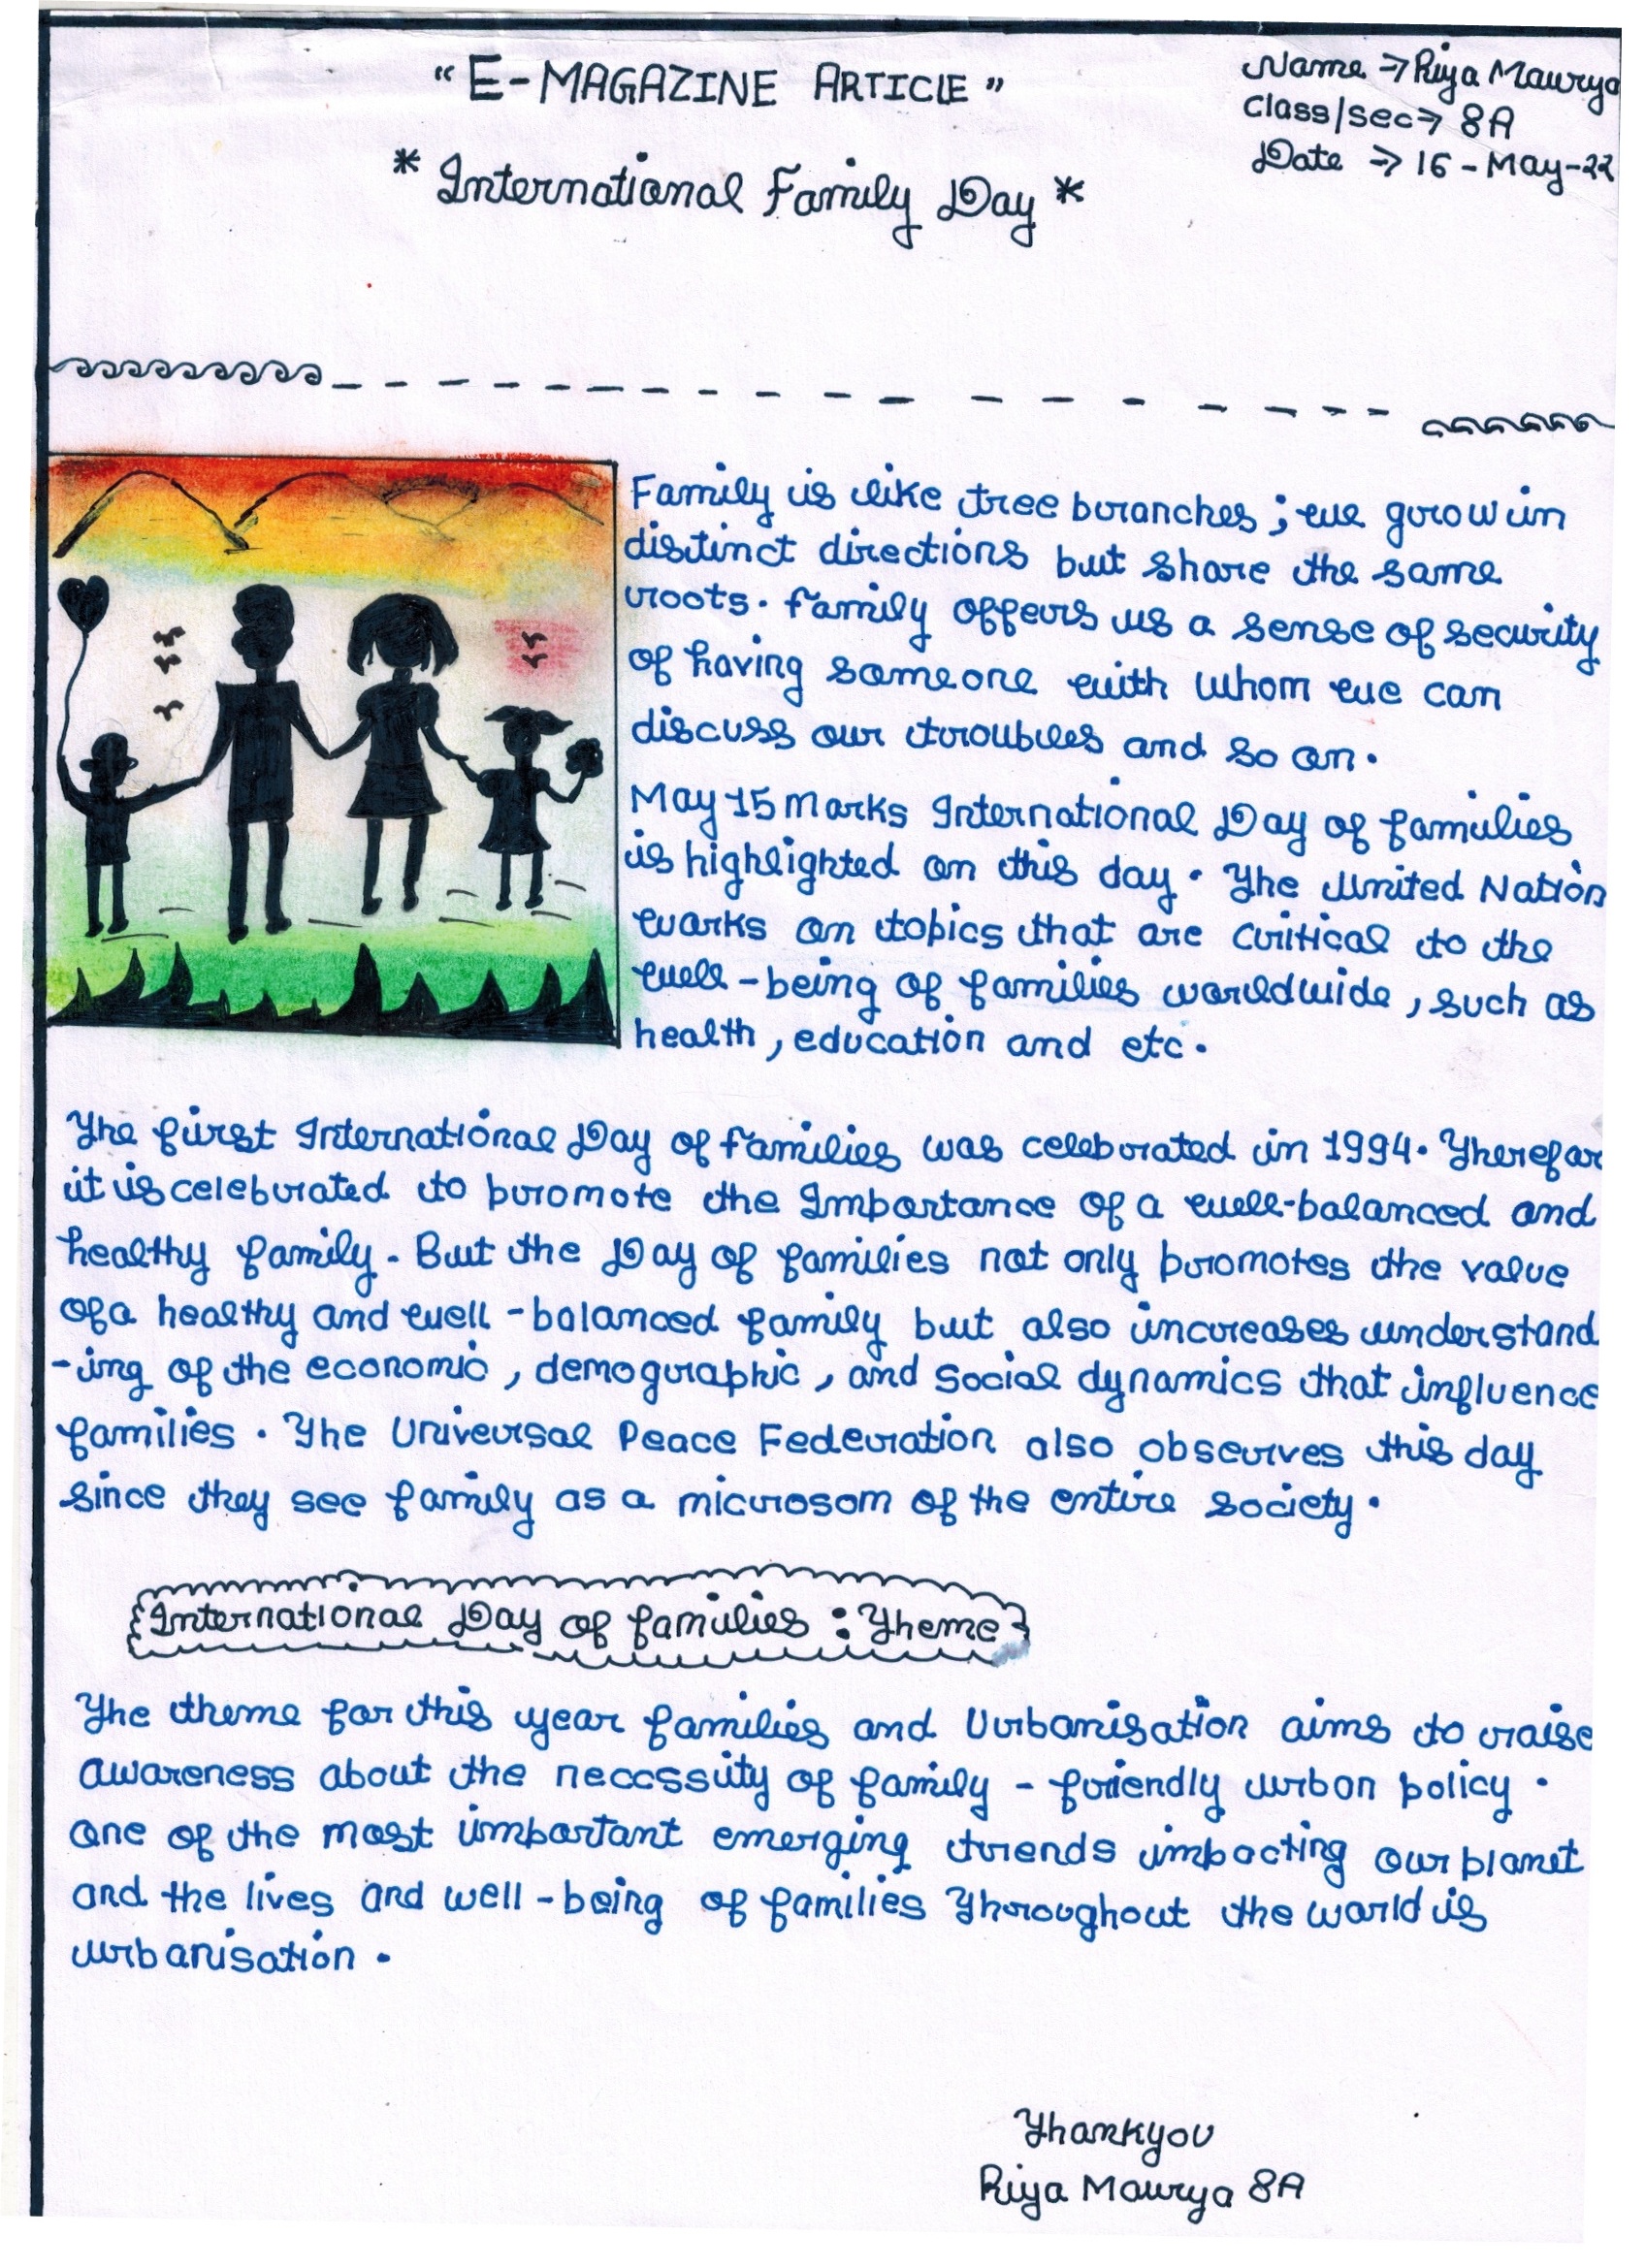 "E-MAGAZINE ARTICLE"
Name → Riya Maurya
Class/sec → 8A
Date → 16-May-22
* International Family Day *
Family is like tree branches ; we grow in
distinct directions but share the same
roots. family offers us a sense of security
of having someone with whom we can
discuss our troubles and so on.
May 15 marks International Day of families
is highlighted on this day. The United Nation
works on topics that are critical to the
well-being of families worldwide, such as
health, education and etc.
The first International Day of families was celebrated in 1994. Therefor
it is celebrated to promote the Importance of a well-balanced and
healthy family. But the Day of families not only promotes the value
of a healthy and well-balanced family but also increases understand
-ing of the economic, demographic, and social dynamics that influence
families. The Universal Peace Federation also observes this day
since they see family as a microsom of the entire society.
International Day of families : Theme
The theme for this year families and Urbanisation aims to raise
awareness about the necessity of family-friendly urban policy.
One of the most important emerging trends impacting our planet
and the lives and well-being of families Throughout the world is
urbanisation.
Thankyou
Riya Maurya 8A